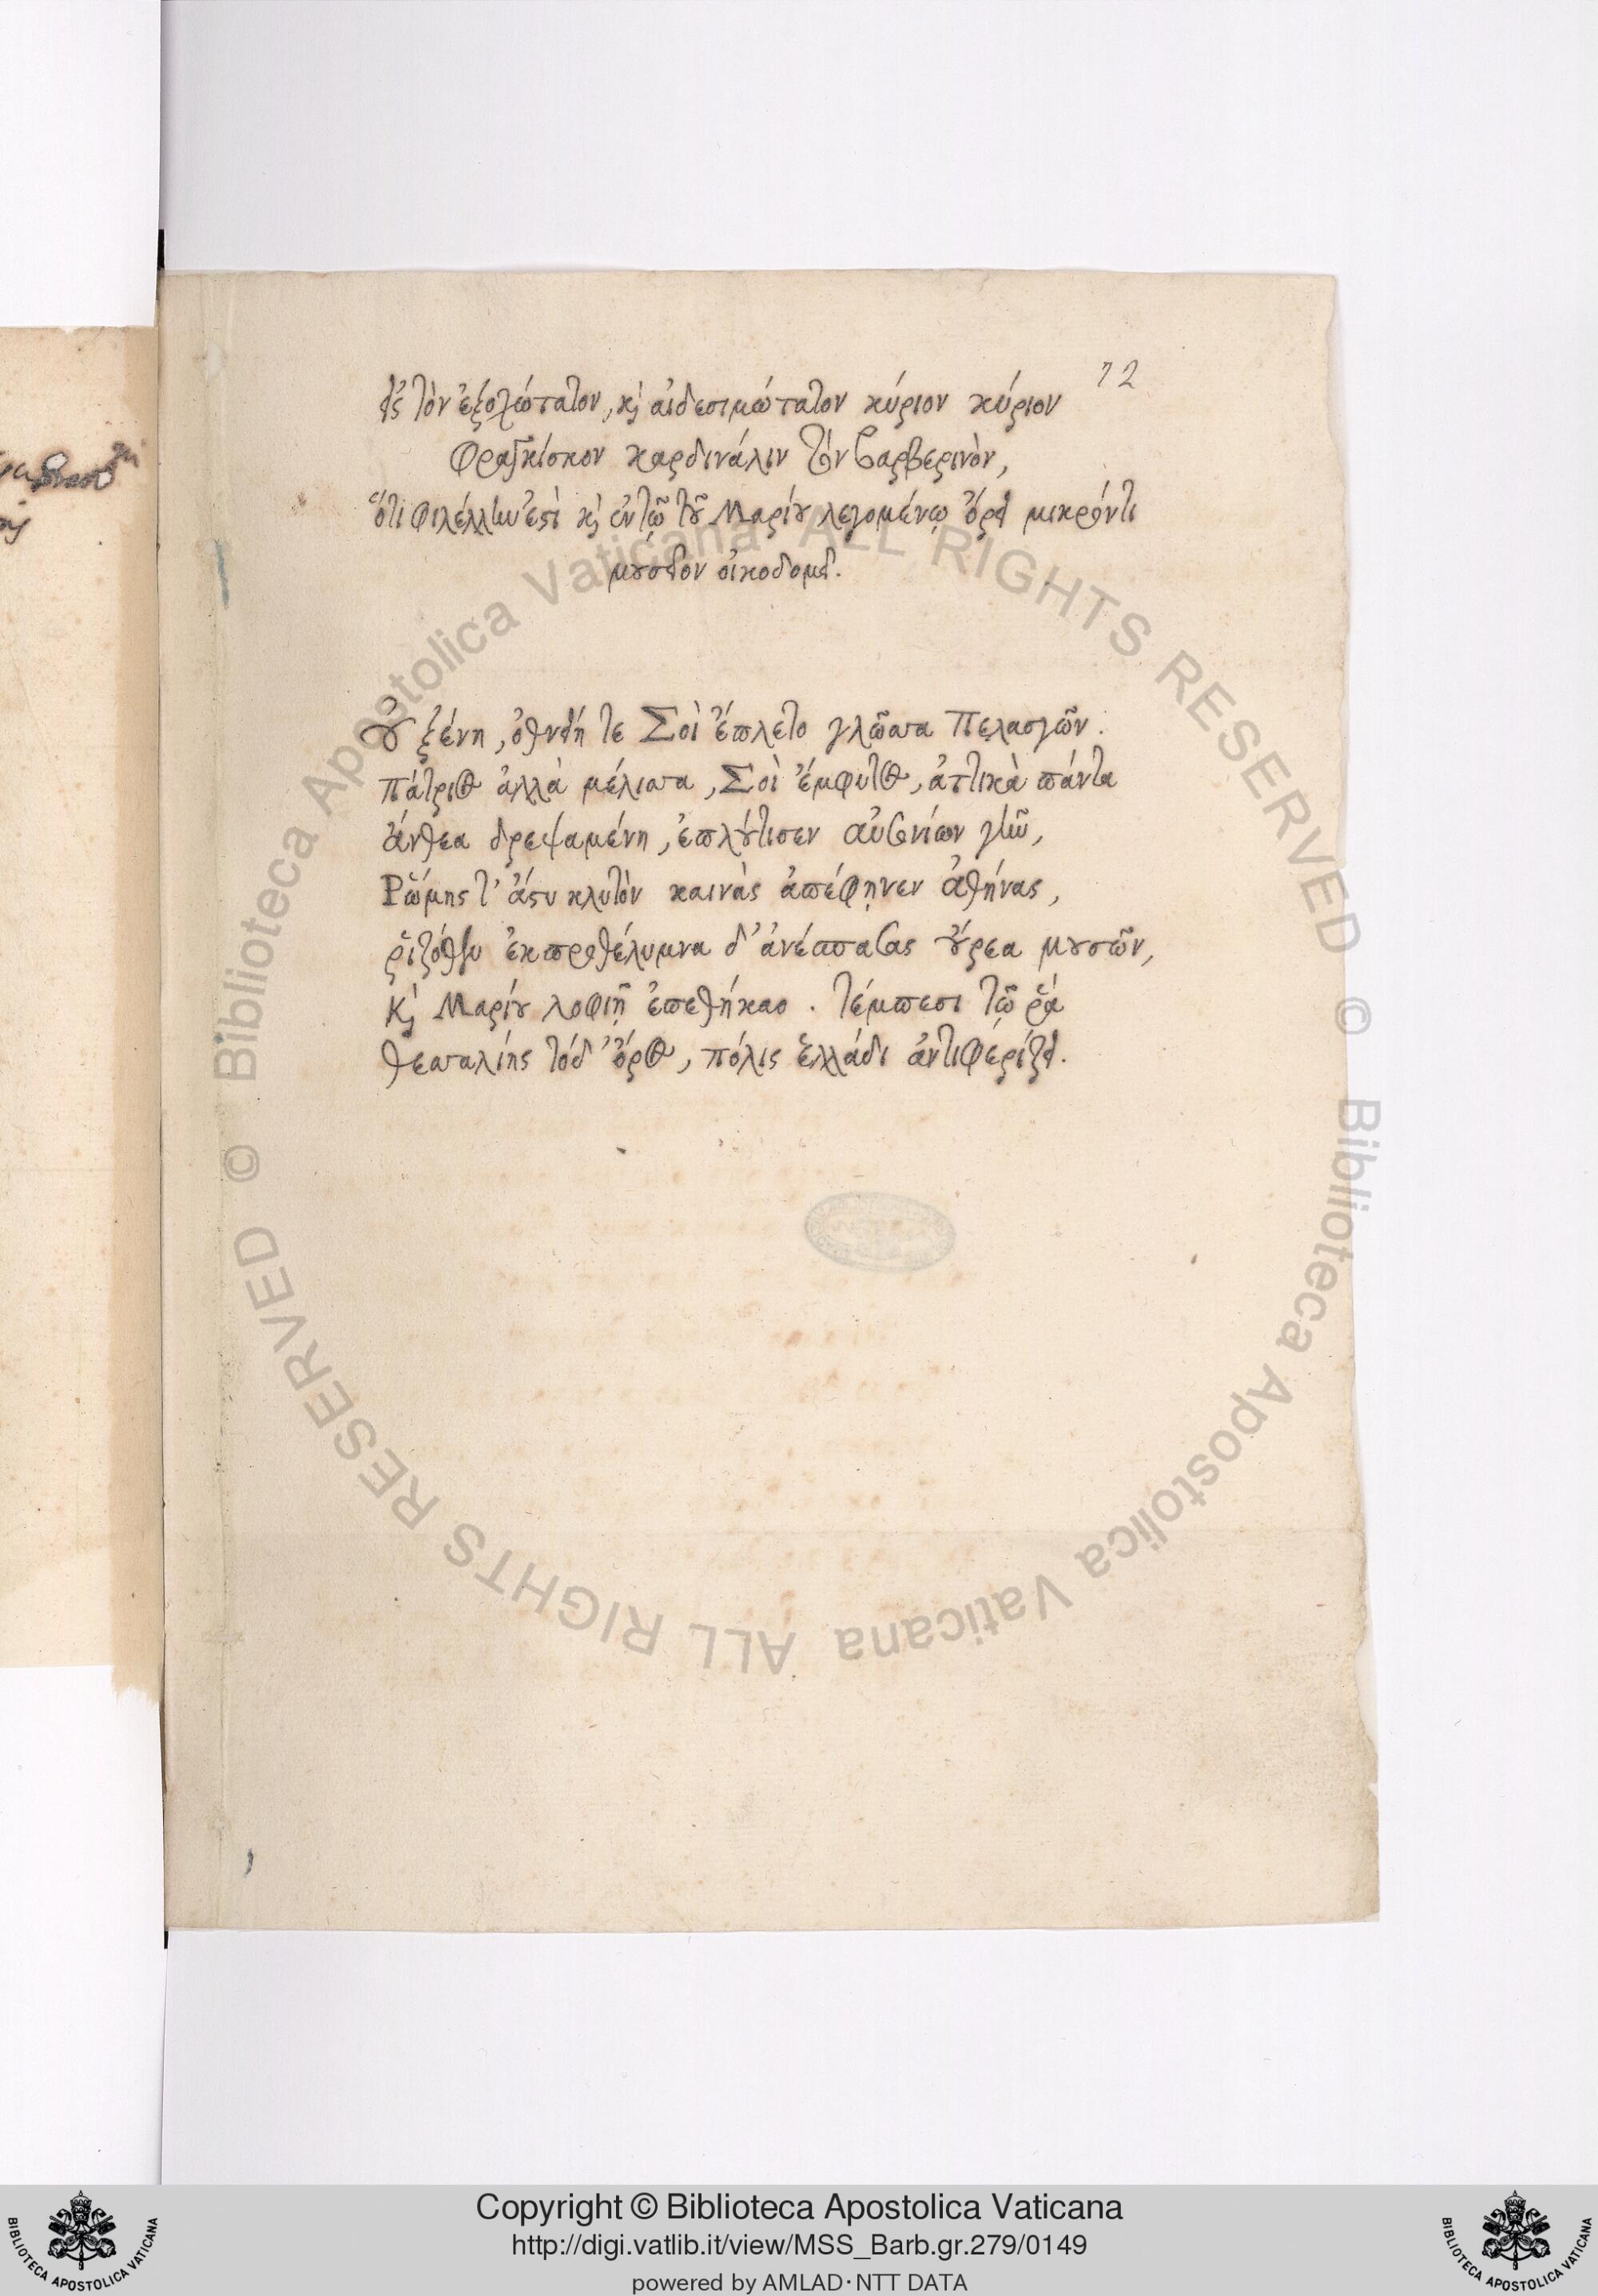 72
εἰς τὸν ἐξοχώτατον, κ αἰδεσιμώτατον κύριον κύριον
Φραγκίσκον καρδινάλιν τὸν βαρβερινὸν,
ὅτι φιλέλλην ἐστὶ κ ἐν τῷ τοῦ Μαρίου λεγομένῳ ὄρει μικρόν τι
μουσεῖον οἰκοδομεῖ.
Οὐ ξένη, ὀθνείη τε Σοὶ ἔπλετο γλῶσσα Πελασγῶν.
πάτριος ἀλλὰ μέλισσα, Σοὶ ἔμφυτος, ἀττικὰ πάντα
ἄνθεα δρεψαμένη, ἐπλούτισεν αὐσονίων γῆν,
Ῥώμης τ' ἄστυ κλυτὸν καινὰς ἀπέφηνεν ἀθήνας,
ῥιζόθεν ἐκπροθέλυμνα δ' ἀνέσπασας οὔρεα μουσῶν,
κ Μαρίου λοφιῇ ἐπεθήκαο. τέμπεσι τῷ ῥά
θεσσαλίης τόδ' ὄρος, πόλις ἑλλάδι ἀντιφερίζει.
Copyright © Biblioteca Apostolica Vaticana
http://digi.vatlib.it/view/MSS_Barb.gr.279/0149
powered by AMLAD·NTT DATA
BIBLIOTECA APOSTOLICA VATICANA
BIBLIOTECA APOSTOLICA VATICANA
© Biblioteca Apostolica Vaticana ALL RIGHTS RESERVED
© Biblioteca Apostolica Vaticana ALL RIGHTS RESERVED